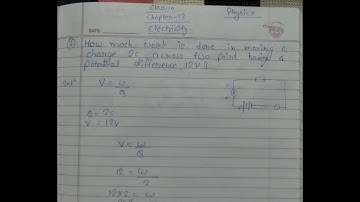 Class-10
Chapter-12
Physics
DATE
Electricity
Q How much work is done in moving a
charge 2c across two point having a
potential difference 12V?
Solⁿ V = W/Q
Q = 2c
V = 12v
V = W/Q
12 = W/2
12×2 = W